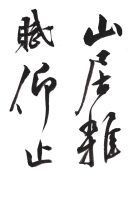 山居雜
賦仰止